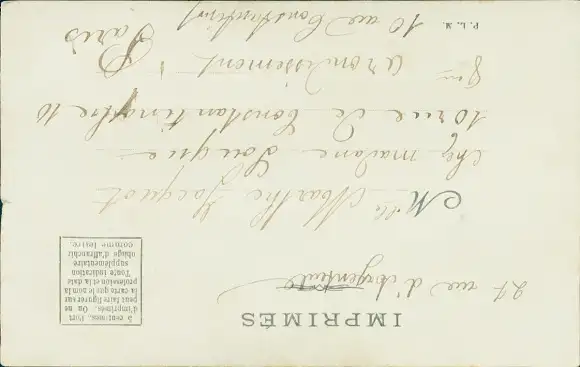 IMPRIMÉS
5 centimes, Port
d'imprimés. On ne
peut faire figurer sur
la carte que le nom la
profession et la date
Toute indication
supplémentaire
oblige d'affranchir
comme lettre.
27 rue d'Argenteuil
Mlle Marthe Jacquot
chez madame
10 rue de Constantinople 10
8me arondissement
Paris
10 rue Constantinop
P. L. M.